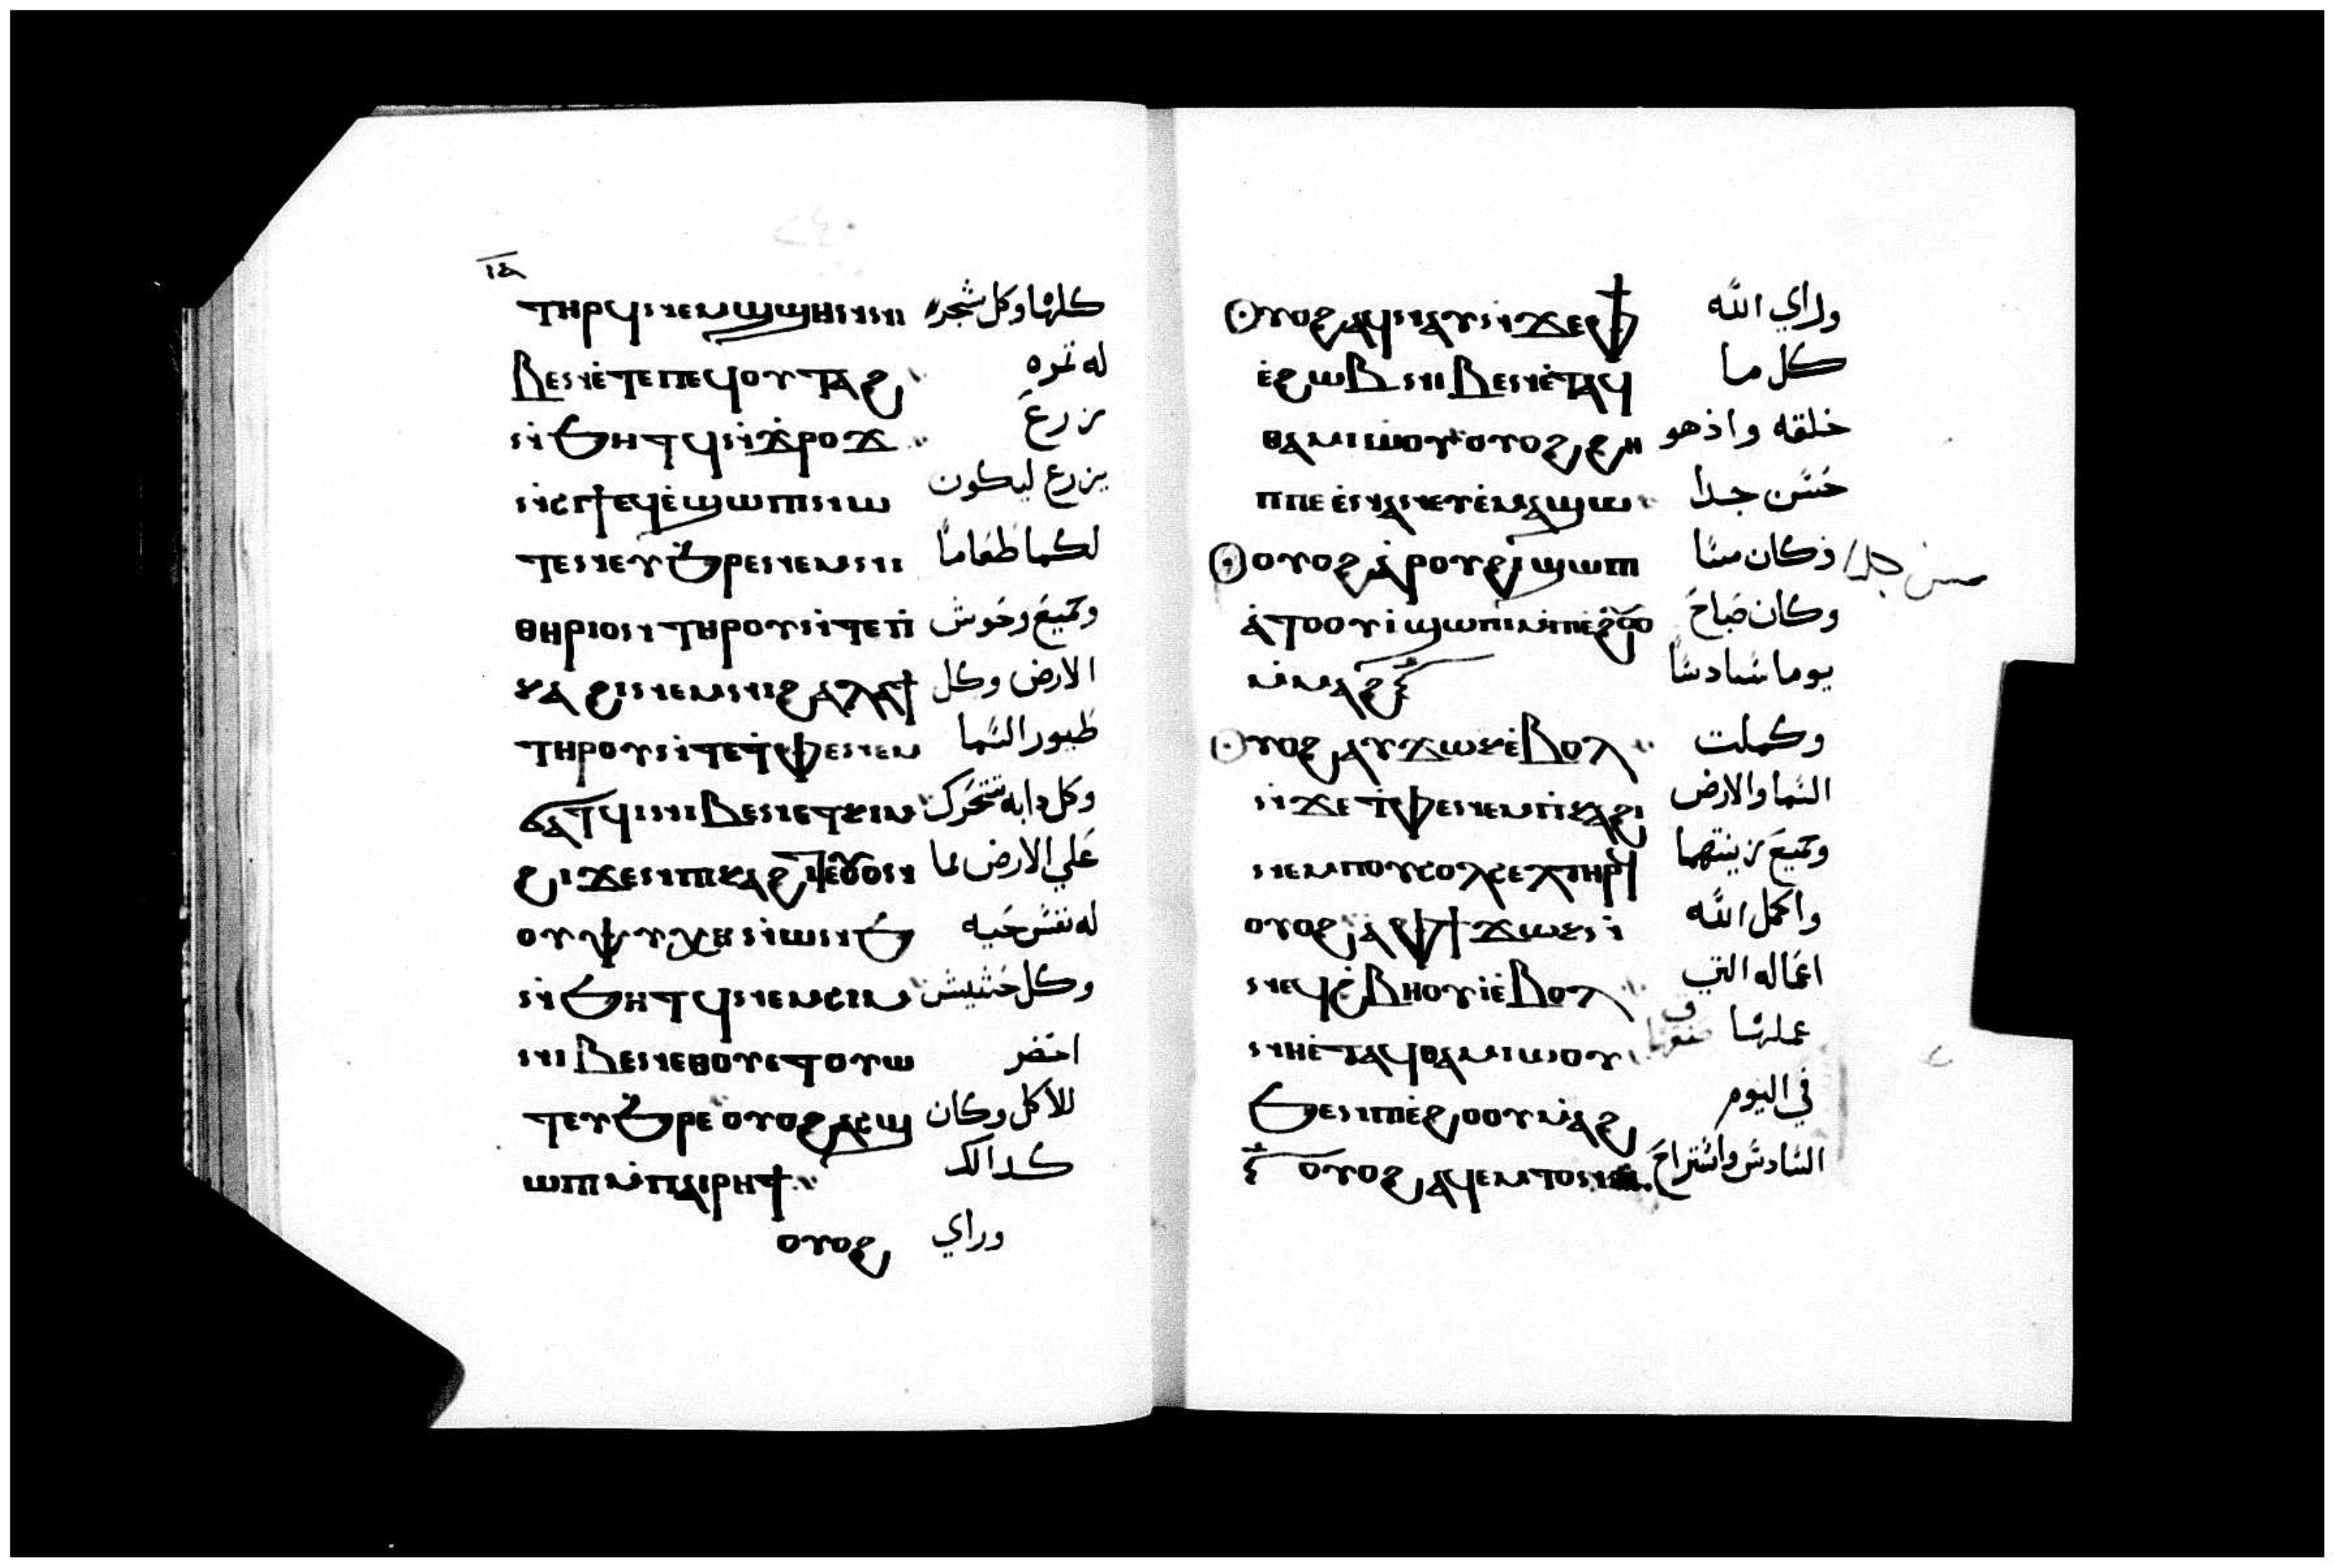 ⲧⲏⲣϥ ⲛⲉⲙ ϣϣⲏⲛ ⲛⲓ كلها وكل شجره
ⲃⲉⲛ ⲉ̇ⲧⲉ ⲡⲉϥⲟⲩⲧⲁϩ له ثمره
ⲛ̇ϧⲏⲧϥ ⲛ̇ϫⲣⲟϫ بزرع
ⲛ̇ⲥⲓϯ ⲉϥⲉ̇ϣⲱⲡⲓ ⲛⲱ يزرع ليكون
ⲧⲉⲛ ⲉⲩϧⲣⲉ ⲛⲉⲙ ⲛⲓ لكما طعاما
ⲑⲏⲣⲓⲟⲛ ⲧⲏⲣⲟⲩ ⲛ̇ⲧⲉ ⲡ̇ وجميع وحوش
ⲕⲁϩⲓ ⲛⲉⲙ ⲛⲓϩⲁⲗⲁϯ الارض وكل
ⲧⲏⲣⲟⲩ ⲛ̇ⲧⲉ ⲧ̇ⲫⲉ ⲛⲉⲙ طيور السما
ϭⲁⲧϥⲓ ⲛⲓⲃⲉⲛ ⲉⲧⲕⲓⲙ وكل دابه تتحرك
ϩⲓϫⲉⲛ ⲡⲕⲁϩⲓ ⲉⲧⲉ ⲟⲩⲟⲛ علي الارض مما
ⲟⲩⲯⲩⲭⲏ ⲛ̇ⲱⲛϧ له نفس حيه
ⲛ̇ϧⲏⲧϥ ⲛⲉⲙ ⲥⲓⲙ وكل حشيش
ⲛⲓⲃⲉⲛ ⲉⲑⲟⲩⲉⲧⲟⲩⲱ اخضر
ⲧⲉⲩϧⲣⲉ ⲟⲩⲟϩ ⲁⲥϣ للاكل وكان
ⲱⲡⲓ ⲙ̇ⲡⲁⲓⲣⲏϯ كدالك
ⲟⲩⲟϩ وراي
ⲟⲩⲟϩ ⲁϥⲛⲁⲩ ⲛ̇ϫⲉ ⲫϯ وراي الله
ⲉ̇ϩⲱⲃ ⲛⲓⲃⲉⲛ ⲉ̇ⲧⲁϥ كل ما
ⲑⲁⲙⲓⲱⲟⲩ ⲟⲩⲟϩ ϩⲏ خلقه واذهو
ⲡⲡⲉ ⲉ̇ⲛⲁⲛⲉⲩ ⲉ̇ⲙⲁϣⲱ حسن جدا
ⲟⲩⲟϩ ⲁ̇ⲣⲟⲩϩⲓ ϣⲱⲡⲓ فكان مسا
ⲁ̇ⲧⲟⲟⲩⲓ ϣⲱⲡⲓ ⲙ̇ⲡⲓⲉ̇ϩⲟⲟⲩ وكان صباح
ⲙ̇ⲙⲁϩ ⲋ̅ يوما سادسا
ⲟⲩⲟϩ ⲁⲩϫⲱⲕ ⲉ̇ⲃⲟⲗ وكملت
ⲛ̇ϫⲉ ⲧ̇ⲫⲉ ⲛⲉⲙ ⲡ̇ⲕⲁϩⲓ السما والارض
ⲛⲉⲙ ⲡⲟⲩⲥⲟⲗⲥⲉⲗ ⲧⲏⲣϥ وجميع زينتهما
ⲟⲩⲟϩ ⲁ̇ ⲫϯ ϫⲱⲕ ⲛ̇ واكمل الله
ⲛⲉϥϩ̇ⲃⲏⲟⲩⲓ ⲉ̇ⲃⲟⲗ اعماله التي
ⲛⲏ ⲉ̇ⲧⲁϥⲑⲁⲙⲓⲱⲟⲩ عملها
ϧⲉⲛ ⲡⲓⲉ̇ϩⲟⲟⲩ ⲙ̇ⲙⲁϩ في اليوم
ⲋ̅ ⲟⲩⲟϩ ⲁϥⲉⲙⲧⲟⲛ السادس واستراح